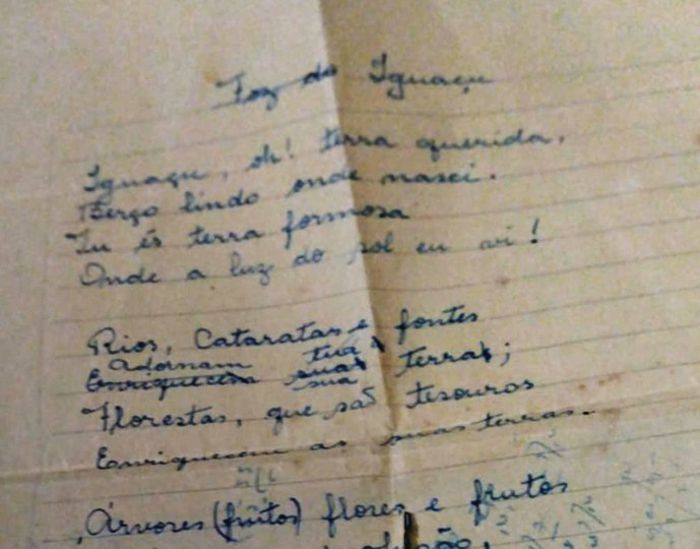 Foz do Iguaçu
Iguaçu, oh! terra querida,
Berço lindo onde nasci.
Tu és terra formosa
Onde a luz do sol eu vi!
Rios, Cataratas e fontes
Adornam tua
Enriquecem suas terras;
sua
Florestas, que são tesouros
Enriquecem as suas terras.
Árvores (frutos) flores e frutos